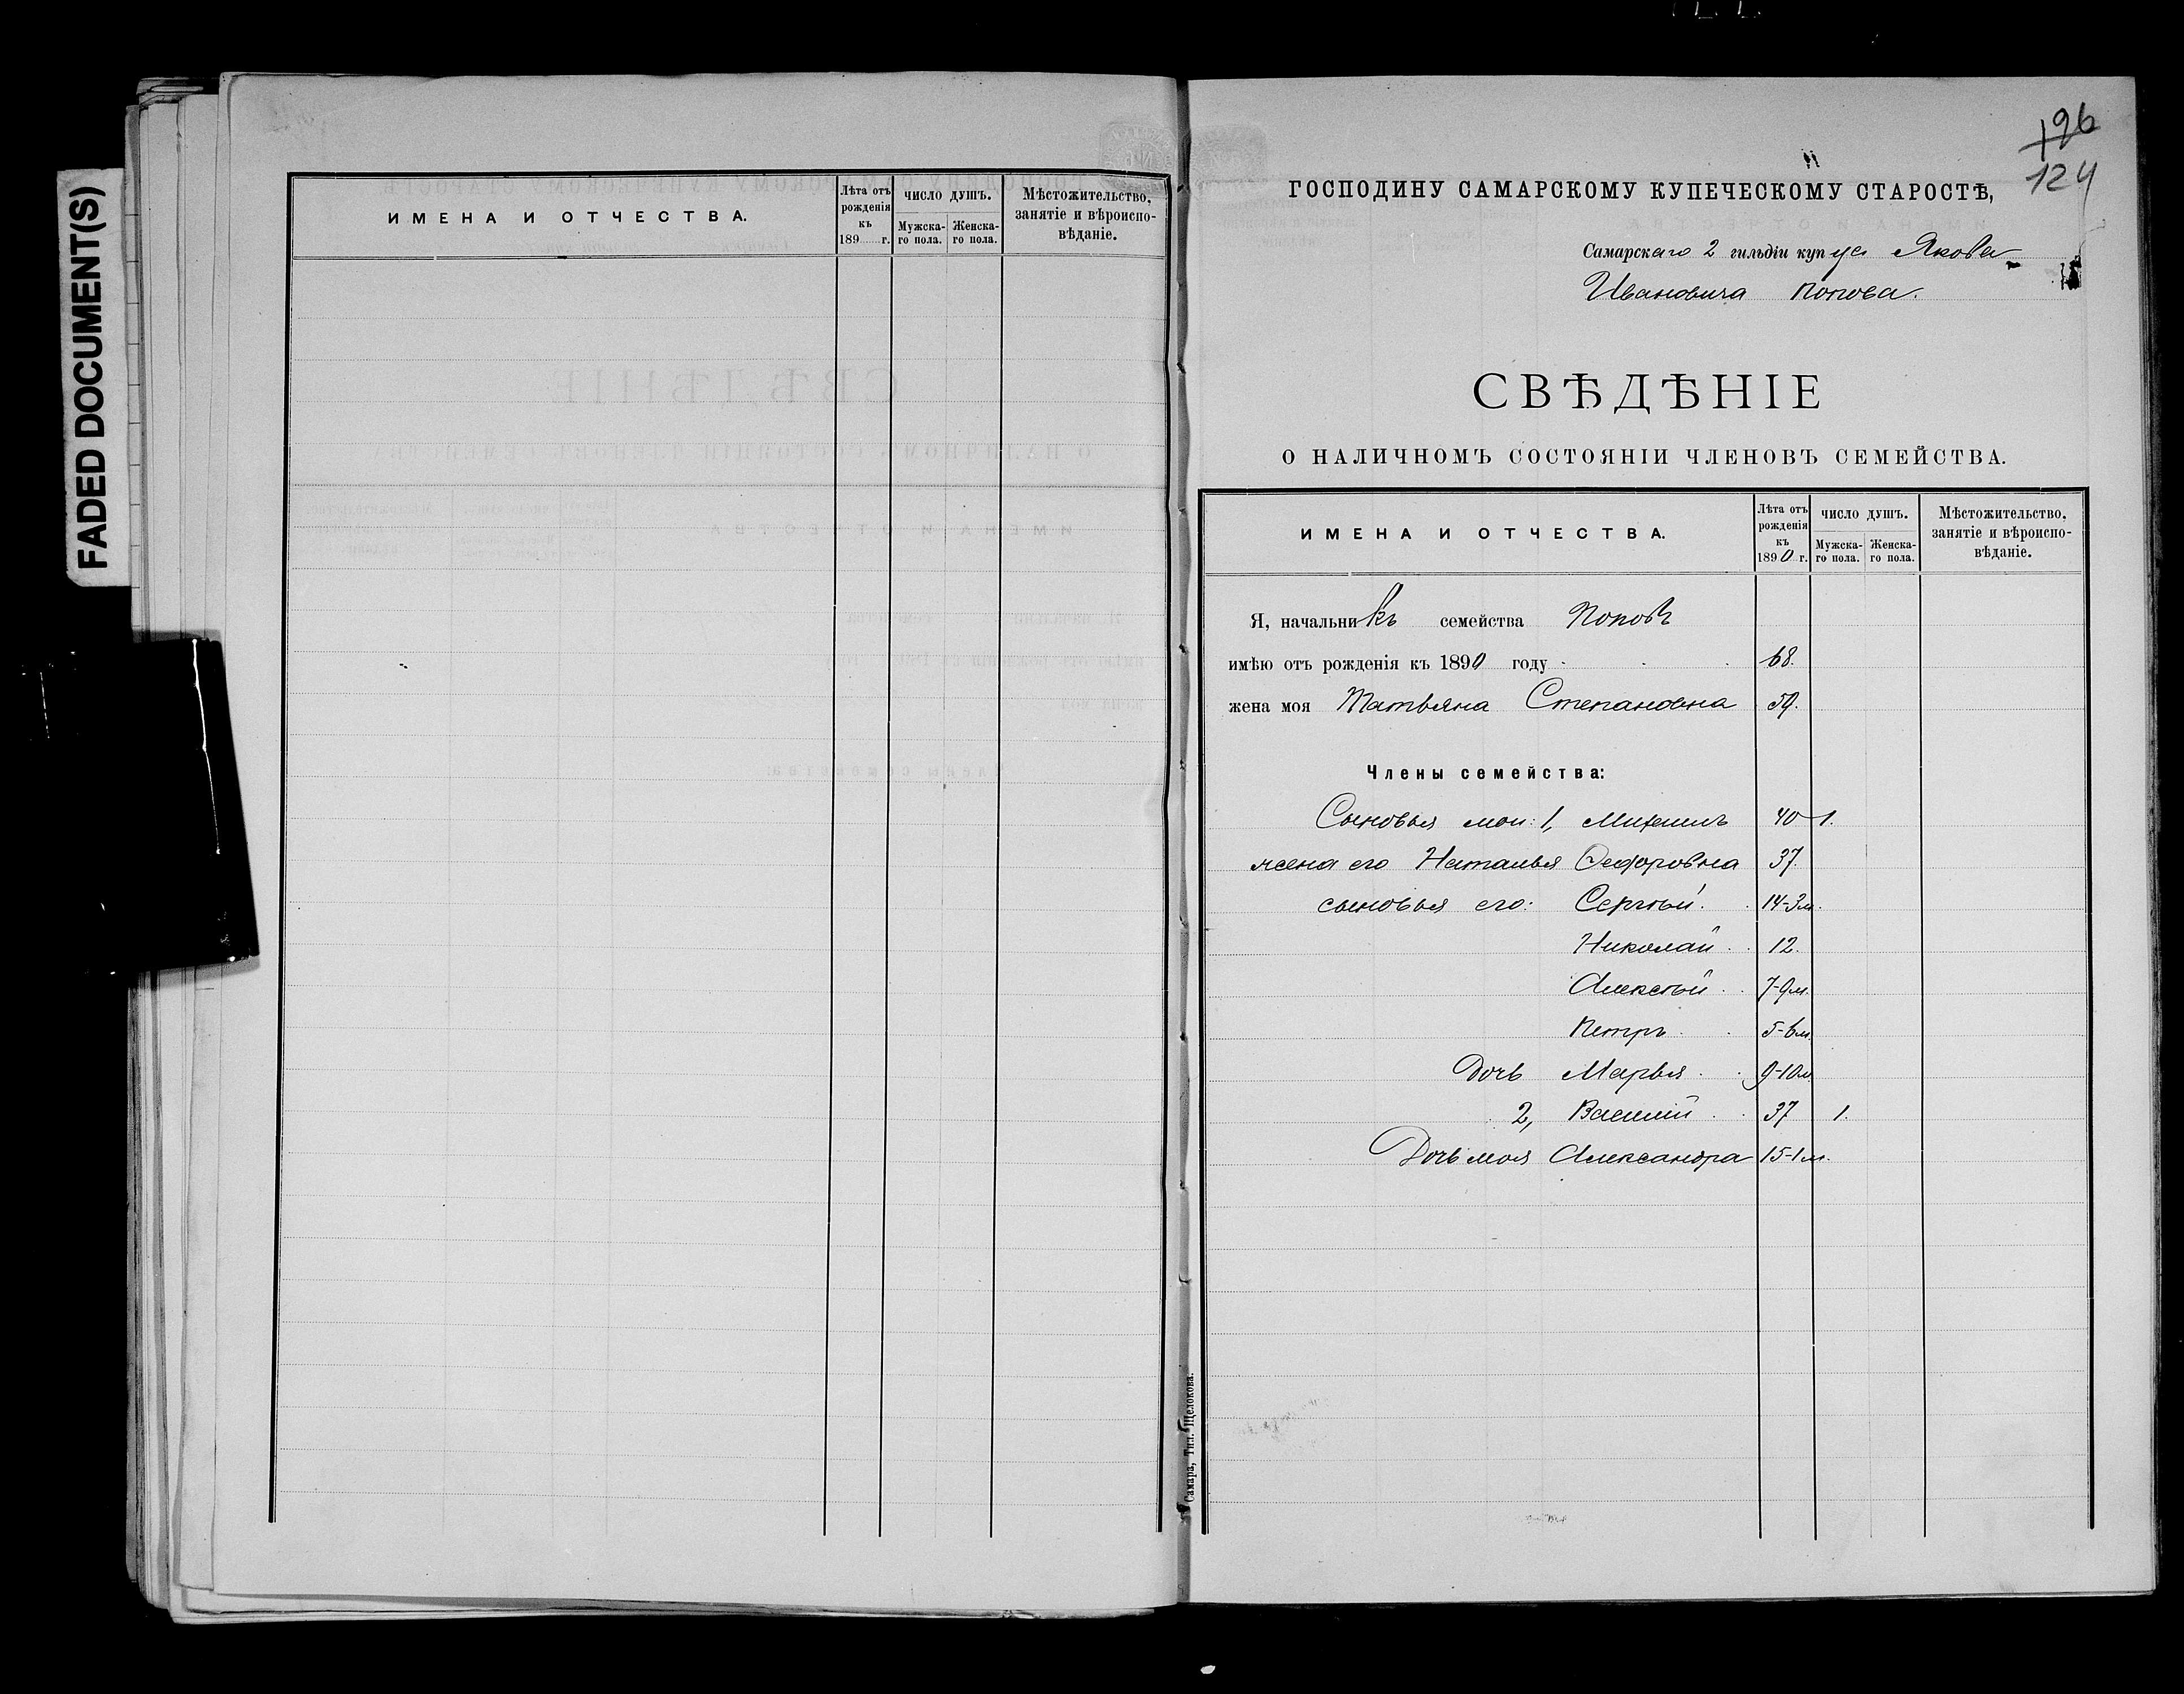 FADED DOCUMENT(S)
ИМЕНА И ОТЧЕСТВА.
Лѣта отъ рожденія къ 189 г.
ЧИСЛО ДУШЪ.
Мужска-го пола.
Женска-го пола.
Мѣстожительство, занятіе и вѣроиспо-вѣданіе.
196
124
ГОСПОДИНУ САМАРСКОМУ КУПЕЧЕСКОМУ СТАРОСТѢ,
Самарскаго 2 гильдіи купца Якова
Ивановича Попова.
СВѢДѢНІЕ
О НАЛИЧНОМЪ СОСТОЯНІИ ЧЛЕНОВЪ СЕМЕЙСТВА.
ИМЕНА И ОТЧЕСТВА.
Лѣта отъ рожденія къ 1890 г.
ЧИСЛО ДУШЪ.
Мужска-го пола.
Женска-го пола.
Мѣстожительство, занятіе и вѣроиспо-вѣданіе.
Я, начальникъ семейства Поповъ
имѣю отъ рожденія къ 1890 году 68.
жена моя Татьяна Степановна 59.
Члены семейства:
Сыновья мои: 1, Михаилъ 40 1.
жена его Наталья Ѳедоровна 37.
сыновья его: Сергѣй. 14-3м.
Николай 12.
Алексѣй 7-9м.
Петръ 5-6м.
Дочь Марья 9-10м.
2, Василій 37 1.
Дочь моя Александра 15-1м.
Самара, Тип. Щелокова.